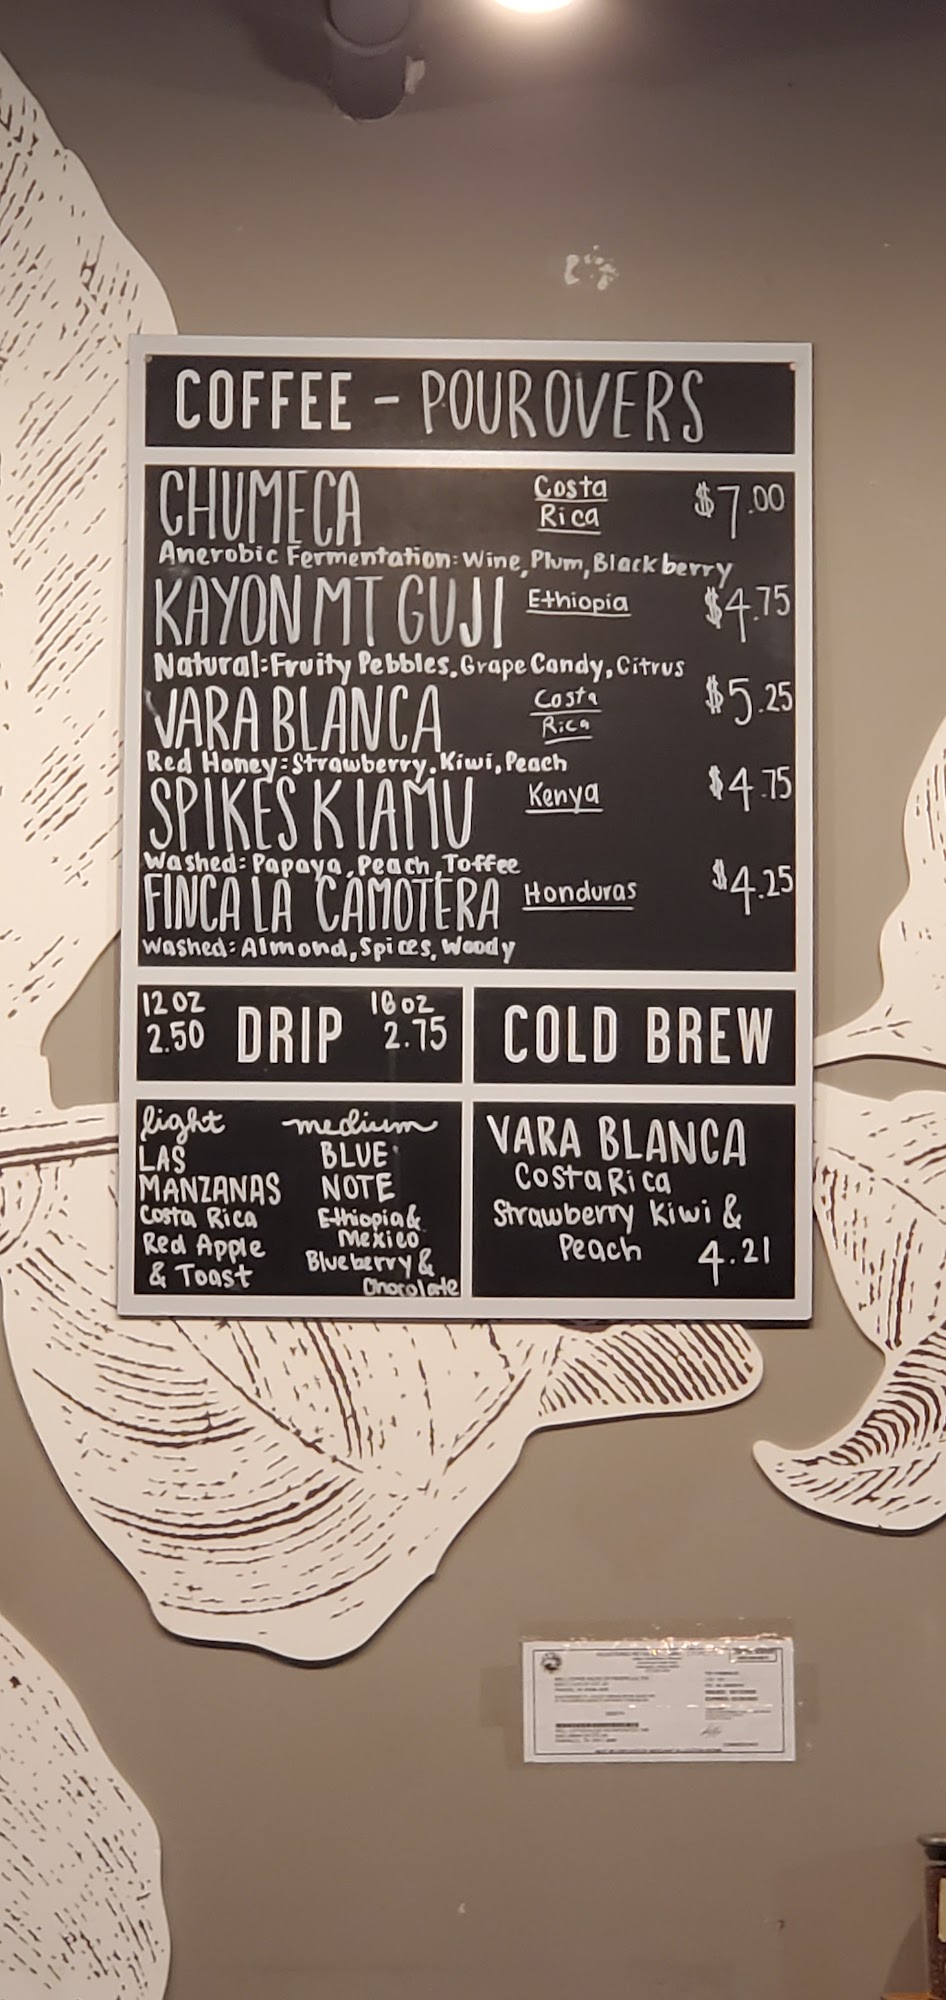 COFFEE - POUROVERS
CHUMECA Costa Rica $7.00
Anerobic Fermentation: Wine, Plum, Blackberry
KAYON MT GUJI Ethiopia $4.75
Natural: Fruity Pebbles, Grape Candy, Citrus
VARA BLANCA Costa Rica $5.25
Red Honey: Strawberry, Kiwi, Peach
SPIKES KIAMU Kenya $4.75
Washed: Papaya, Peach, Toffee
FINCA LA CAMOTERA Honduras $4.25
Washed: Almond, Spices, Woody
12 OZ
2.50
DRIP
16 oz
2.75
light
LAS
MANZANAS
Costa Rica
Red Apple
& Toast
medium
BLUE
NOTE
Ethiopia &
Mexico
Blueberry &
Chocolate
COLD BREW
VARA BLANCA
Costa Rica
Strawberry Kiwi &
Peach 4.21